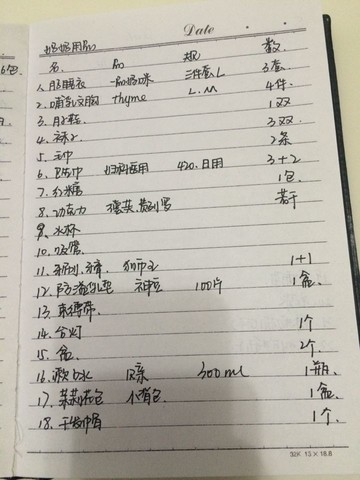 Date
妈妈用品
名. 品 规 数.
1. 月子睡衣 三件套 L 3套.
2. 哺乳文胸 thyme L.M 4件.
3. 月子鞋. 1双
4. 袜子 3双.
5. 毛巾 2条
6. 卫生巾 妇科医用 420.日用 3+2
7. 红糖 1包.
8. 巧克力 德芙.费列罗 若干
9. 水杯
10. 吸管.
11. 1+1
12. 防溢乳垫 100片 1盒.
13. 束缚带.
14. 台灯 1个
15. 盆. 2个.
16. 漱口水 贝亲 300ml 1瓶.
17. 小 包. 1盒.
18. 干发帽 1个.
32K 13×18.8